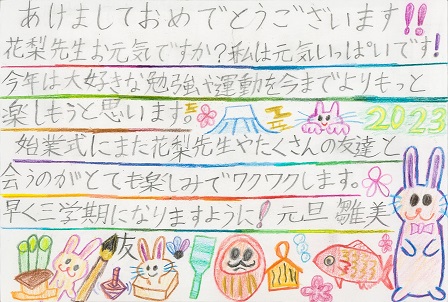 あけましておめでとうございます!!
花梨先生お元気ですか?私は元気いっぱいです!
今年は大好きな勉強や運動を今までよりもっと
楽しもうと思います。
2023
始業式にまた花梨先生やたくさんの友達と
会うのがとても楽しみでワクワクします。
早く三学期になりますように!元旦 雛美
友